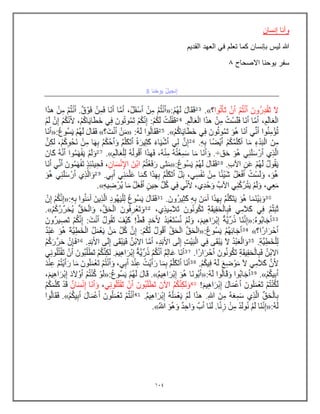 وأنا إنسان
الله ليس بإنسان كما تعلم في العهد القديم
سفر يوحنا الاصحاح ٨
إنجيل يوحنا 8
لاَ تَقْدِرُونَ أَنْتُمْ أَنْ تَأْتُوا؟». 23فَقَالَ لَهُمْ:«أَنْتُمْ مِنْ أَسْفَلُ، أَمَّا أَنَا فَمِنْ فَوْقُ. أَنْتُمْ مِنْ هذَا
الْعَالَمِ، أَمَّا أَنَا فَلَسْتُ مِنْ هذَا الْعَالَمِ. 24فَقُلْتُ لَكُمْ: إِنَّكُمْ تَمُوتُونَ فِي خَطَايَاكُمْ، لأَنَّكُمْ إِنْ لَمْ
تُؤْمِنُوا أَنِّي أَنَا هُوَ تَمُوتُونَ فِي خَطَايَاكُمْ». 25فَقَالُوا لَهُ: «مَنْ أَنْتَ؟» فَقَالَ لَهُمْ يَسُوعُ:«أَنَا
مِنَ الْبَدْءِ مَا أُكَلِّمُكُمْ أَيْضًا بِهِ. 26إِنَّ لِي أَشْيَاءَ كَثِيرَةً أَتَكَلَّمُ وَأَحْكُمُ بِهَا مِنْ نَحْوِكُمْ، لكِنَّ
الَّذِي أَرْسَلَنِي هُوَ حَق. وَأَنَا مَا سَمِعْتُهُ مِنْهُ، فَهذَا أَقُولُهُ لِلْعَالَمِ». 27وَلَمْ يَفْهَمُوا أَنَّهُ كَانَ
يَقُولُ لَهُمْ عَنِ الآبِ. 28فَقَالَ لَهُمْ يَسُوعُ:«مَتَى رَفَعْتُمُ ابْنَ الإِنْسَانِ، فَحِينَئِذٍ تَفْهَمُونَ أَنِّي أَنَا
هُوَ، وَلَسْتُ أَفْعَلُ شَيْئًا مِنْ نَفْسِي، بَلْ أَتَكَلَّمُ بِهذَا كَمَا عَلَّمَنِي أَبِي. 29وَالَّذِي أَرْسَلَنِي هُوَ
مَعِي، وَلَمْ يَتْرُكْنِي الآبُ وَحْدِي، لأَنِّي فِي كُلِّ حِينٍ أَفْعَلُ مَا يُرْضِيهِ».
30وَبَيْنَمَا هُوَ يَتَكَلَّمُ بِهذَا آمَنَ بِهِ كَثِيرُونَ. 31فَقَالَ يَسُوعُ لِلْيَهُودِ الَّذِينَ آمَنُوا بِهِ:«إِنَّكُمْ إِنْ
ثَبَتُّمْ فِي كَلاَمِي فَبِالْحَقِيقَةِ تَكُونُونَ تَلاَمِيذِي، 32وَتَعْرِفُونَ الْحَقَّ، وَالْحَقُّ يُحَرِّرُكُمْ».
33أَجَابُوهُ:«إِنَّنَا ذُرِّيَّةُ إِبْرَاهِيمَ، وَلَمْ نُسْتَعْبَدْ لأَحَدٍ قَطُّ! كَيْفَ تَقُولُ أَنْتَ: إِنَّكُمْ تَصِيرُونَ
أَحْرَارًا؟» 34أَجَابَهُمْ يَسُوعُ:«الْحَقَّ الْحَقَّ أَقُولُ لَكُمْ: إِنَّ كُلَّ مَنْ يَعْمَلُ الْخَطِيَّةَ هُوَ عَبْدٌ
لِلْخَطِيَّةِ. 35وَالْعَبْدُ لاَ يَبْقَى فِي الْبَيْتِ إِلَى الأَبَدِ، أَمَّا الابْنُ فَيَبْقَى إِلَى الأَبَدِ. 36فَإِنْ حَرَّرَكُمْ
الابْنُ فَبِالْحَقِيقَةِ تَكُونُونَ أَحْرَارًا. 37أَنَا عَالِمٌ أَنَّكُمْ ذُرِّيَّةُ إِبْرَاهِيمَ. لكِنَّكُمْ تَطْلُبُونَ أَنْ تَقْتُلُونِي
لأَنَّ كَلاَمِي لاَ مَوْضِعَ لَهُ فِيكُمْ. 38أَنَا أَتَكَلَّمُ بِمَا رَأَيْتُ عِنْدَ أَبِي، وَأَنْتُمْ تَعْمَلُونَ مَا رَأَيْتُمْ عِنْدَ
أَبِيكُمْ». 39أَجَابُوا وَقَالُوا لَهُ:«أَبُونَا هُوَ إِبْرَاهِيمُ». قَالَ لَهُمْ يَسُوعُ:«لَوْ كُنْتُمْ أَوْلاَدَ إِبْرَاهِيمَ،
لَكُنْتُمْ تَعْمَلُونَ أَعْمَالَ إِبْرَاهِيمَ! 40وَلكِنَّكُمُ الآنَ تَطْلُبُونَ أَنْ تَقْتُلُونِي، وَأَنَا إِنْسَانٌ قَدْ كَلَّمَكُمْ
بِالْحَقِّ الَّذِي سَمِعَهُ مِنَ اللهِ. هذَا لَمْ يَعْمَلْهُ إِبْرَاهِيمُ. 41أَنْتُمْ تَعْمَلُونَ أَعْمَالَ أَبِيكُمْ». فَقَالُوا
لَهُ:«إِنَّنَا لَمْ نُولَدْ مِنْ زِنًا. لَنَا أَبٌ وَاحِدٌ وَهُوَ اللهُ».
١٠٤